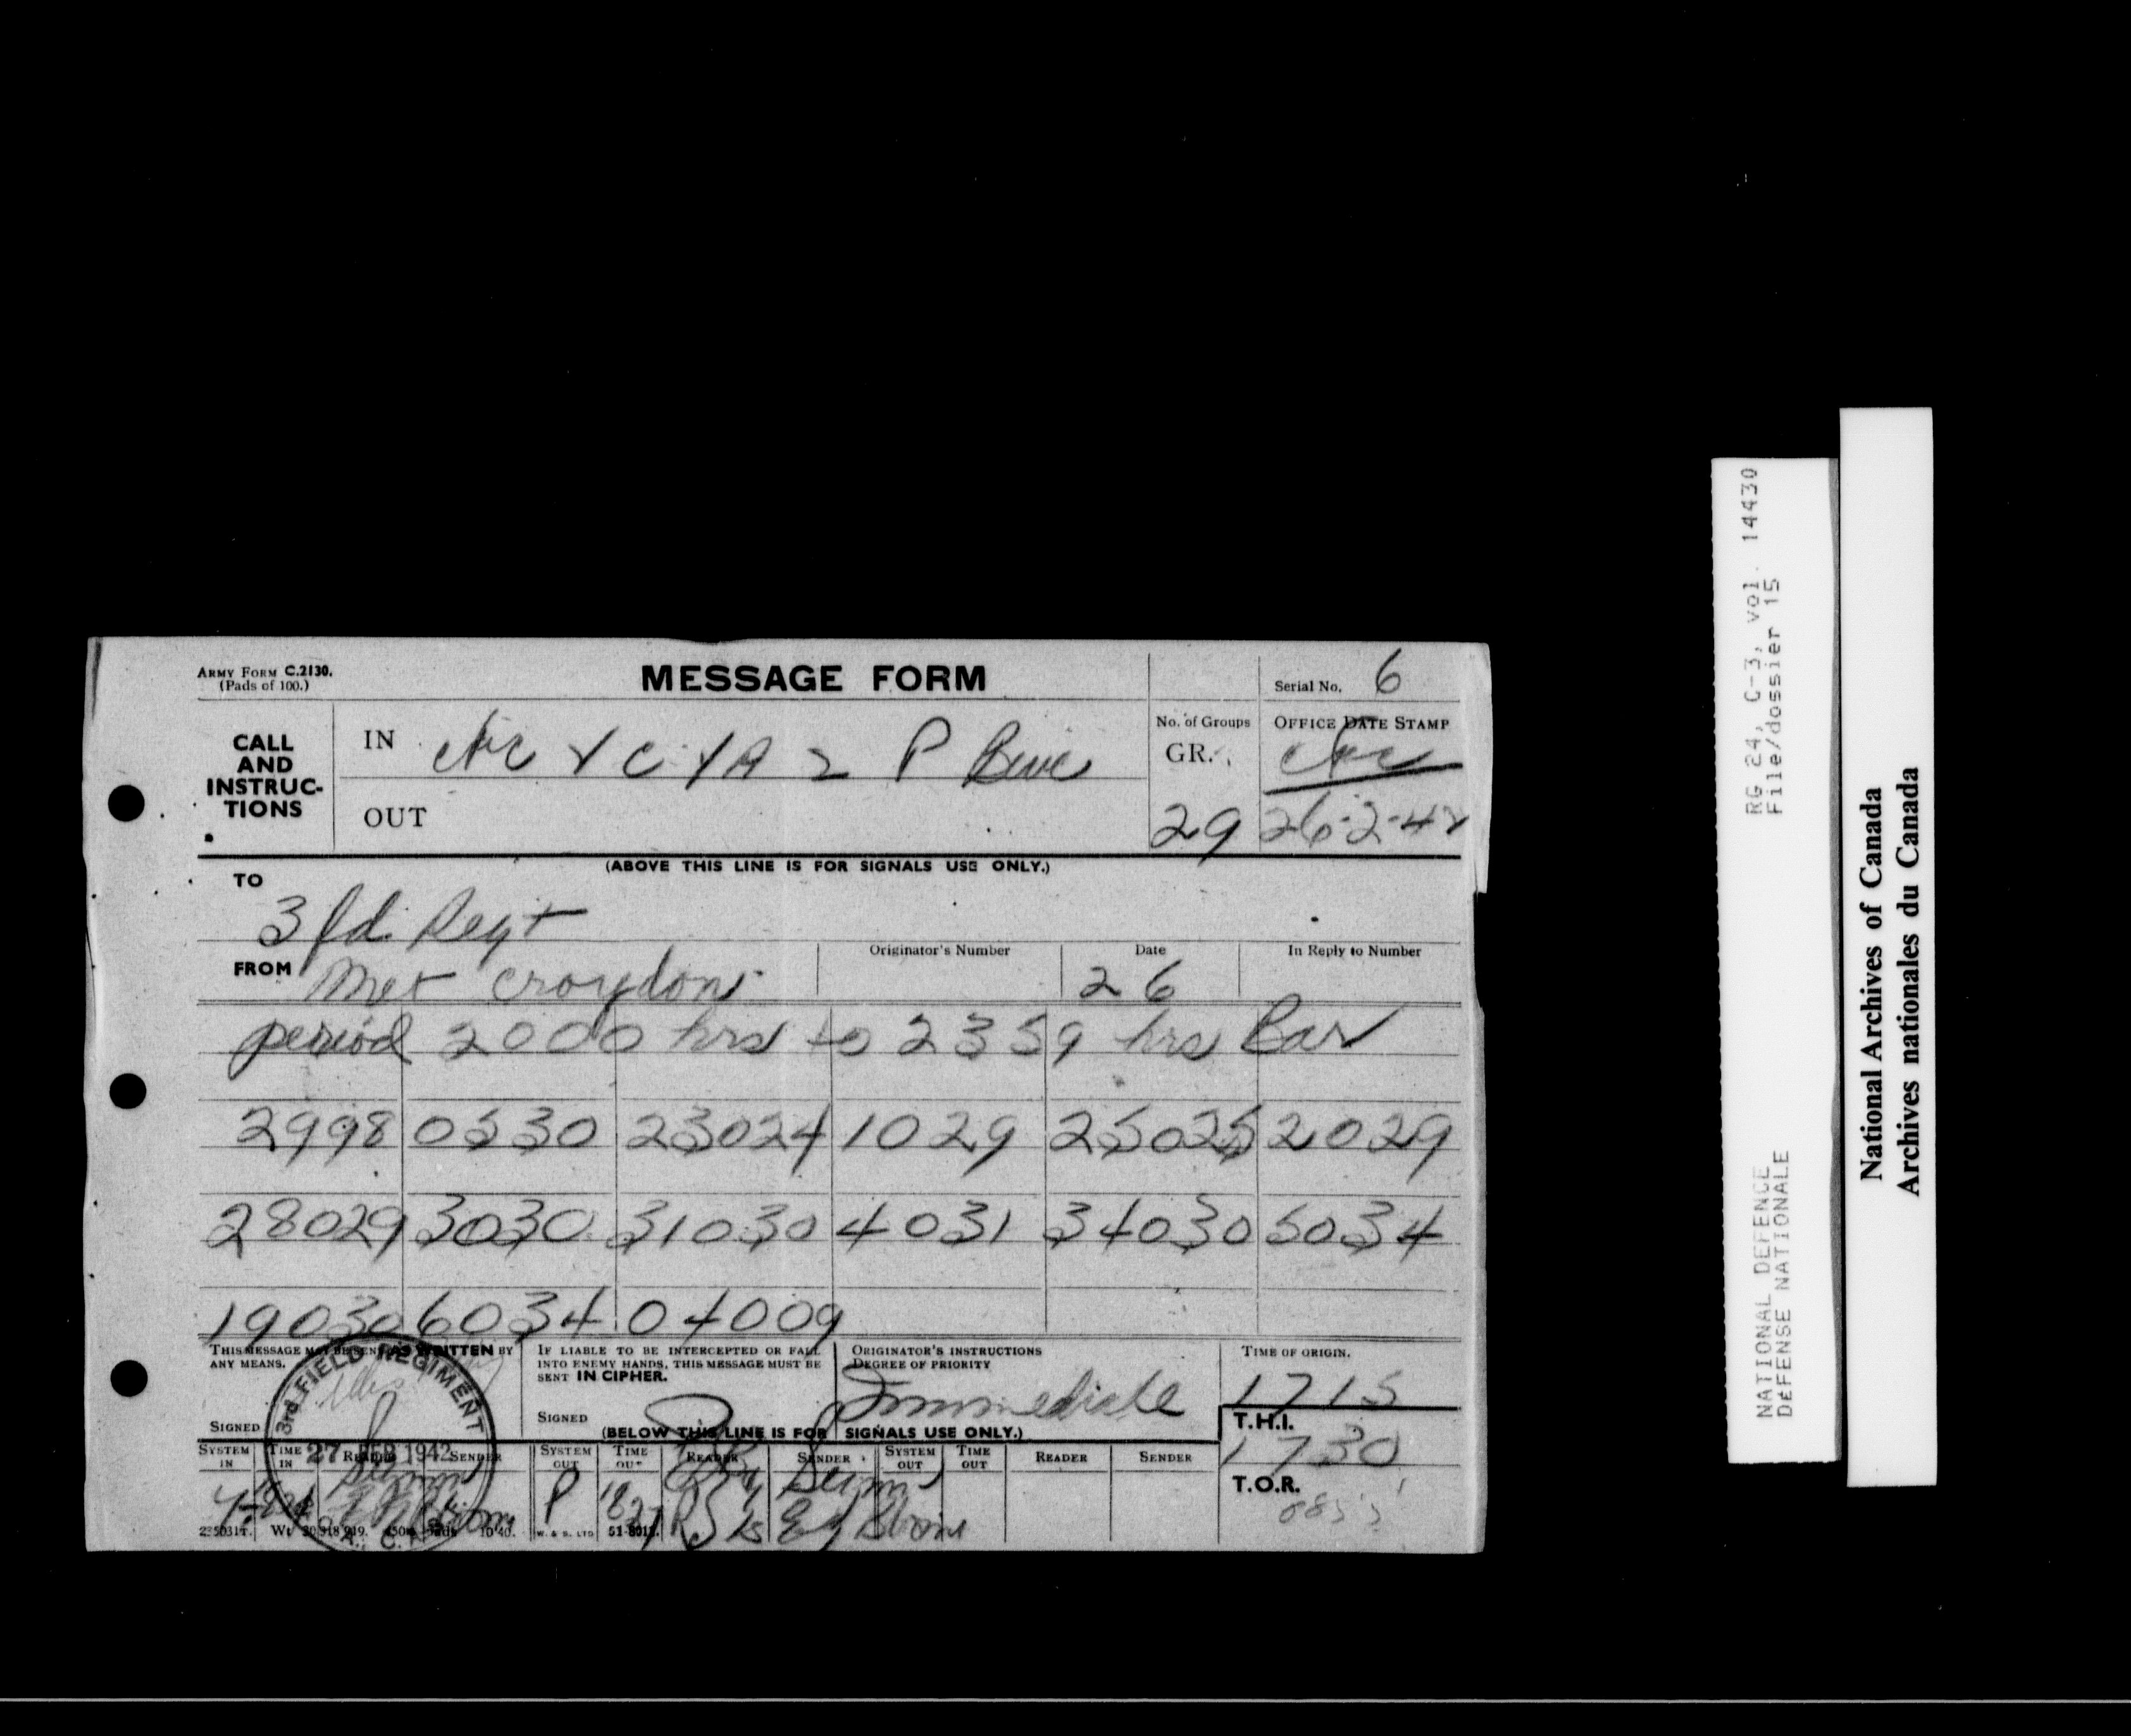 ARMY FORM C.2130.
(Pads of 100.)
MESSAGE FORM
Serial No. 6
CALL AND INSTRUC-TIONS
IN
P
No. of Groups
GR.
29
OFFICE DATE STAMP
26-2-42
OUT
(ABOVE THIS LINE IS FOR SIGNALS USE ONLY.)
TO
3 fd. Regt
FROM Met Croydon
Originator's Number
Date
26
In Reply to Number
period 2000 hrs to 2359 hrs Bar
2998 0530 23024 1029 25025 2029
28029 3030 31030 4031 34030 5034
19030 6034 04009
THIS MESSAGE MAY BE SENT AS WRITTEN BY ANY MEANS.
SIGNED
IF LIABLE TO BE INTERCEPTED OR FALL INTO ENEMY HANDS, THIS MESSAGE MUST BE SENT IN CIPHER.
SIGNED
ORIGINATOR'S INSTRUCTIONS
DEGREE OF PRIORITY
Immediate
TIME OF ORIGIN.
1715
T.H.I.
1730
T.O.R.
(BELOW THIS LINE IS FOR SIGNALS USE ONLY.)
3rd FIELD REGIMENT
27 FEB 1942
SYSTEM IN TIME IN READER SENDER SYSTEM OUT TIME OUT READER SENDER SYSTEM OUT TIME OUT READER SENDER
P
W. & S. LTD 51-8011.
RG 24, C-3, vol. 14430
File/dossier 15
NATIONAL DEFENCE
DEFENSE NATIONALE
National Archives of Canada
Archives nationales du Canada